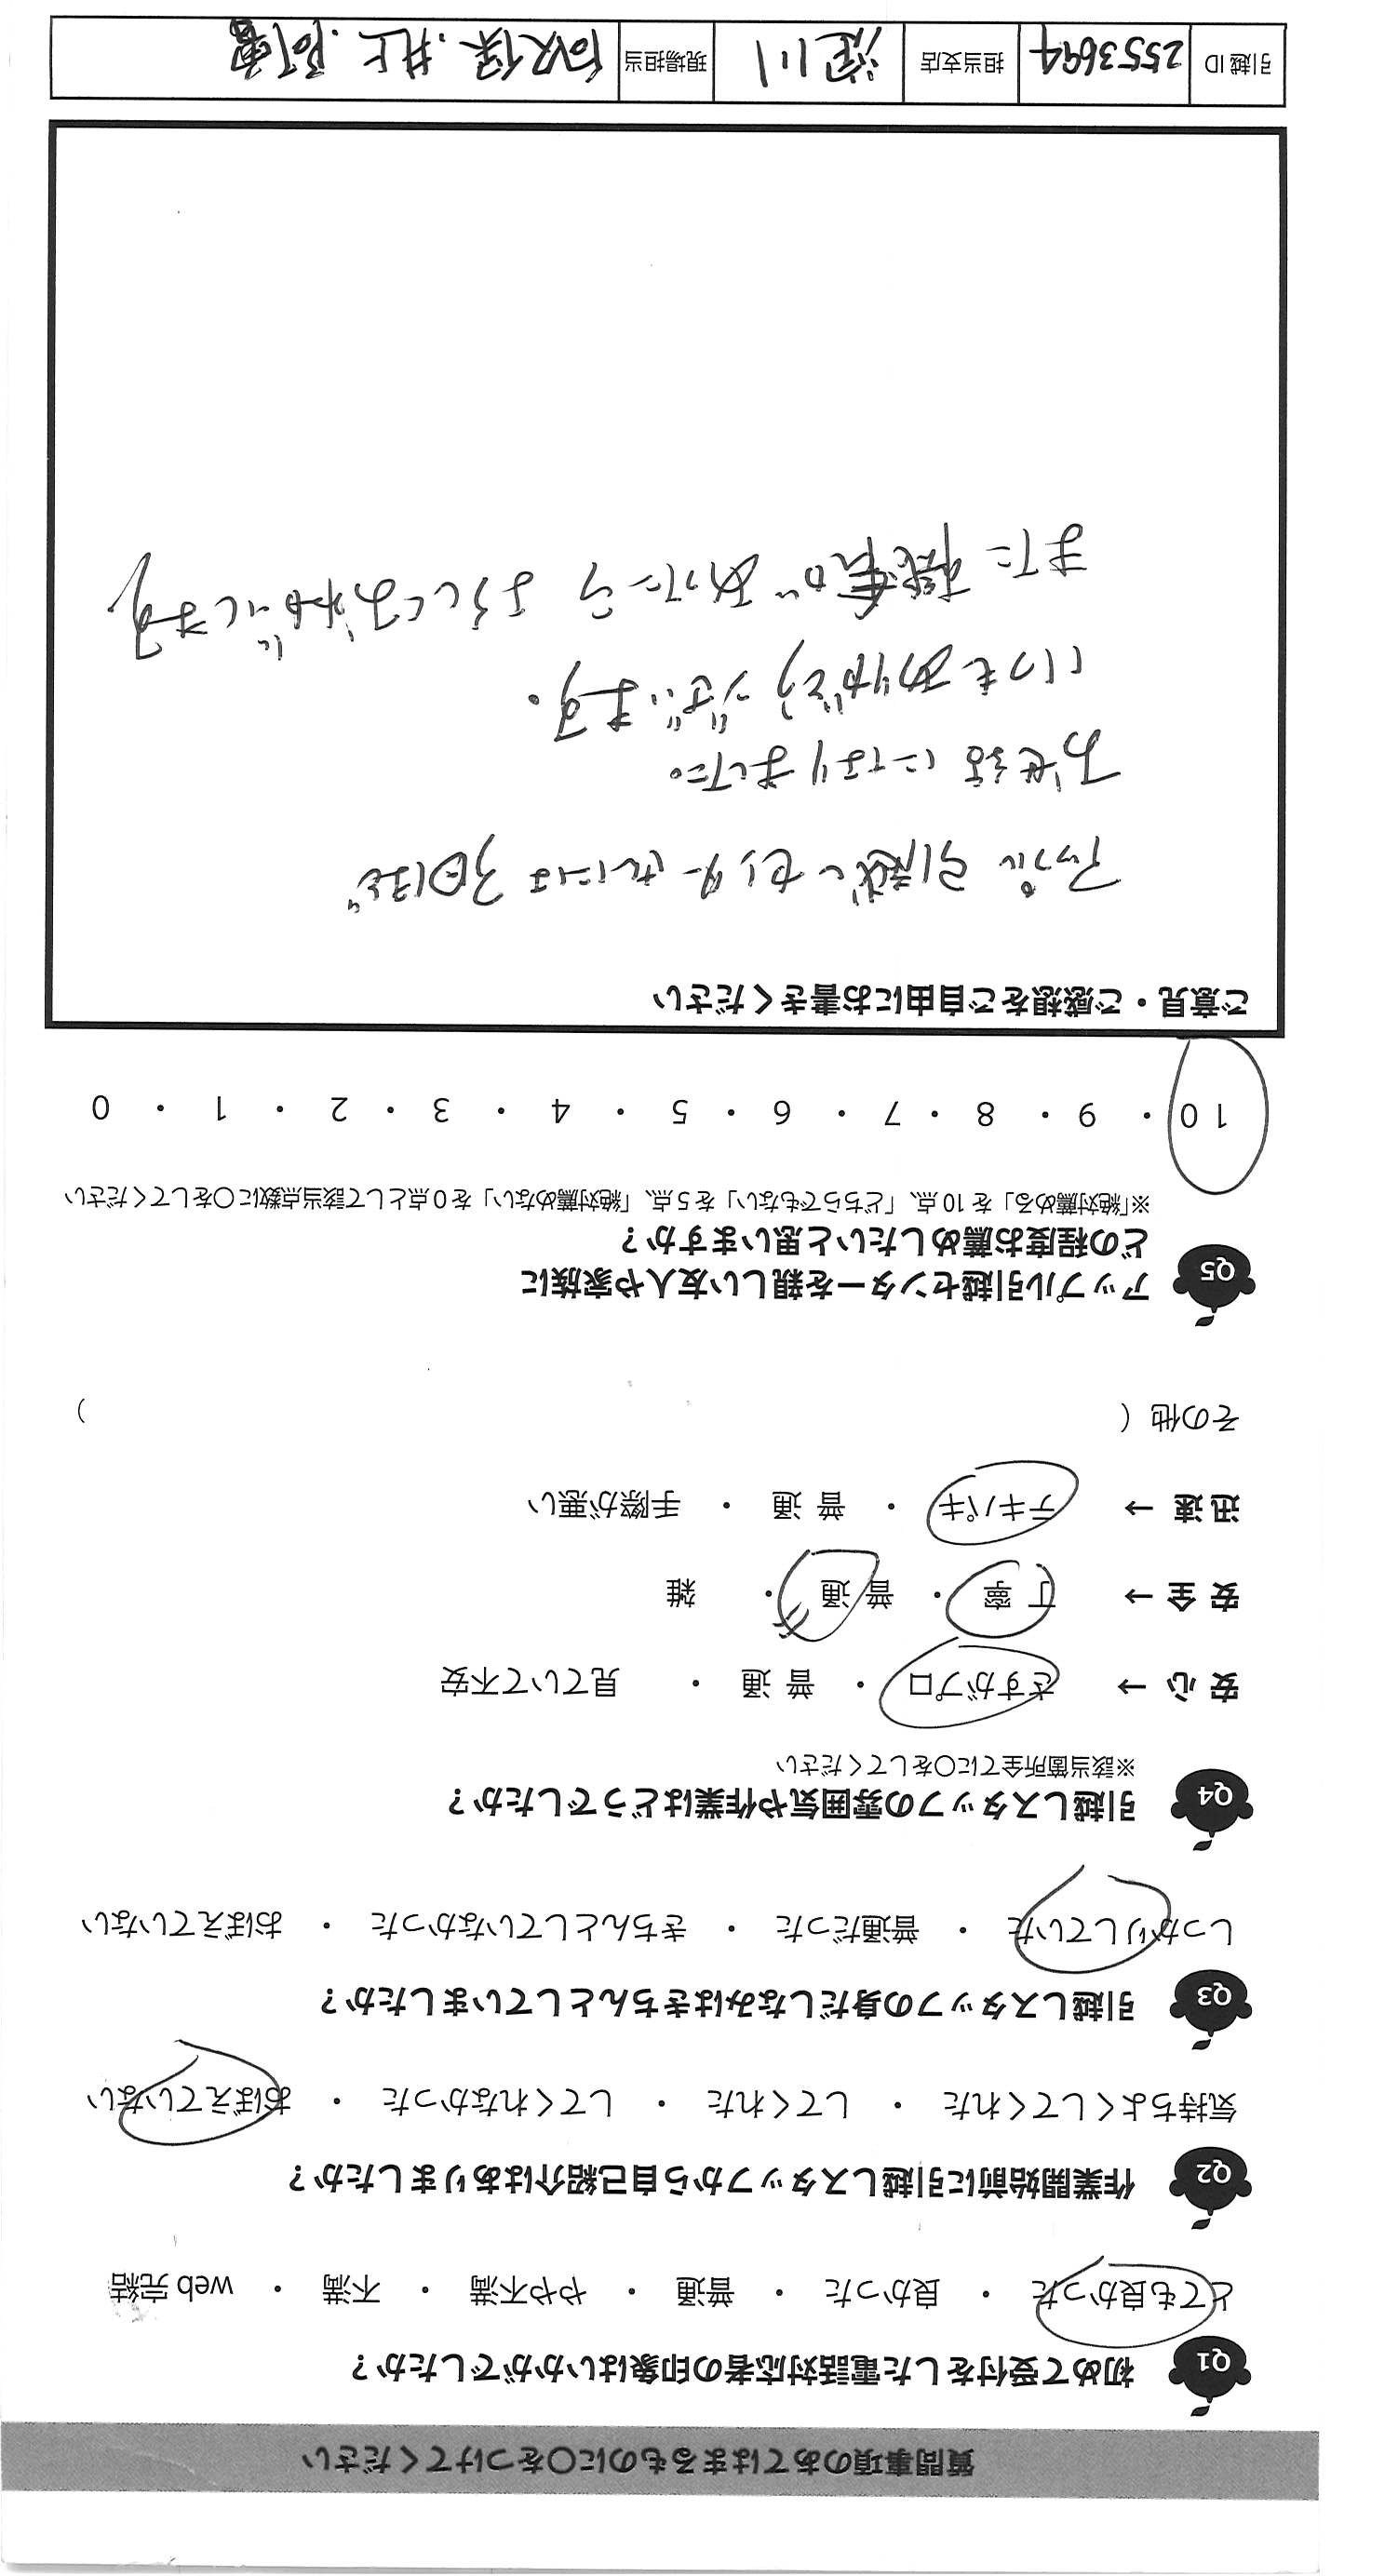 質問事項のあてはまるものに○をつけてください
Q1 初めて受付をした電話対応者の印象はいかがでしたか?
とても良かった ・ 良かった ・ 普通 ・ やや不満 ・ 不満 ・ web 完結
Q2 作業開始前に引越しスタッフから自己紹介はありましたか?
気持ちよくしてくれた ・ してくれた ・ してくれなかった ・ おぼえていない
Q3 引越しスタッフの身だしなみはきちんとしていましたか?
しっかりしていた ・ 普通だった ・ きちんとしていなかった ・ おぼえていない
Q4 引越しスタッフの雰囲気や作業はどうでしたか?
※該当箇所全てに○をしてください
安 心 → さすがプロ ・ 普 通 ・ 見ていて不安
安 全 → 丁 寧 ・ 普 通 ・ 雑
迅 速 → テキパキ ・ 普 通 ・ 手際が悪い
その他 ( )
Q5 アップル引越センターを親しい友人や家族に
どの程度お薦めしたいと思いますか?
※「絶対薦める」を 10 点、「どちらでもない」を 5 点、「絶対薦めない」を 0 点として該当点数に○をしてください
10 ・ 9 ・ 8 ・ 7 ・ 6 ・ 5 ・ 4 ・ 3 ・ 2 ・ 1 ・ 0
ご意見・ご感想をご自由にお書きください
アップル引越しセンターさんには3回ほど
お世話になりました。
いつもありがとうございます。
また機会があったらよろしくおねがいします
引越 ID 2553694 担当支店 淀川 現場担当 久保.井上.阿